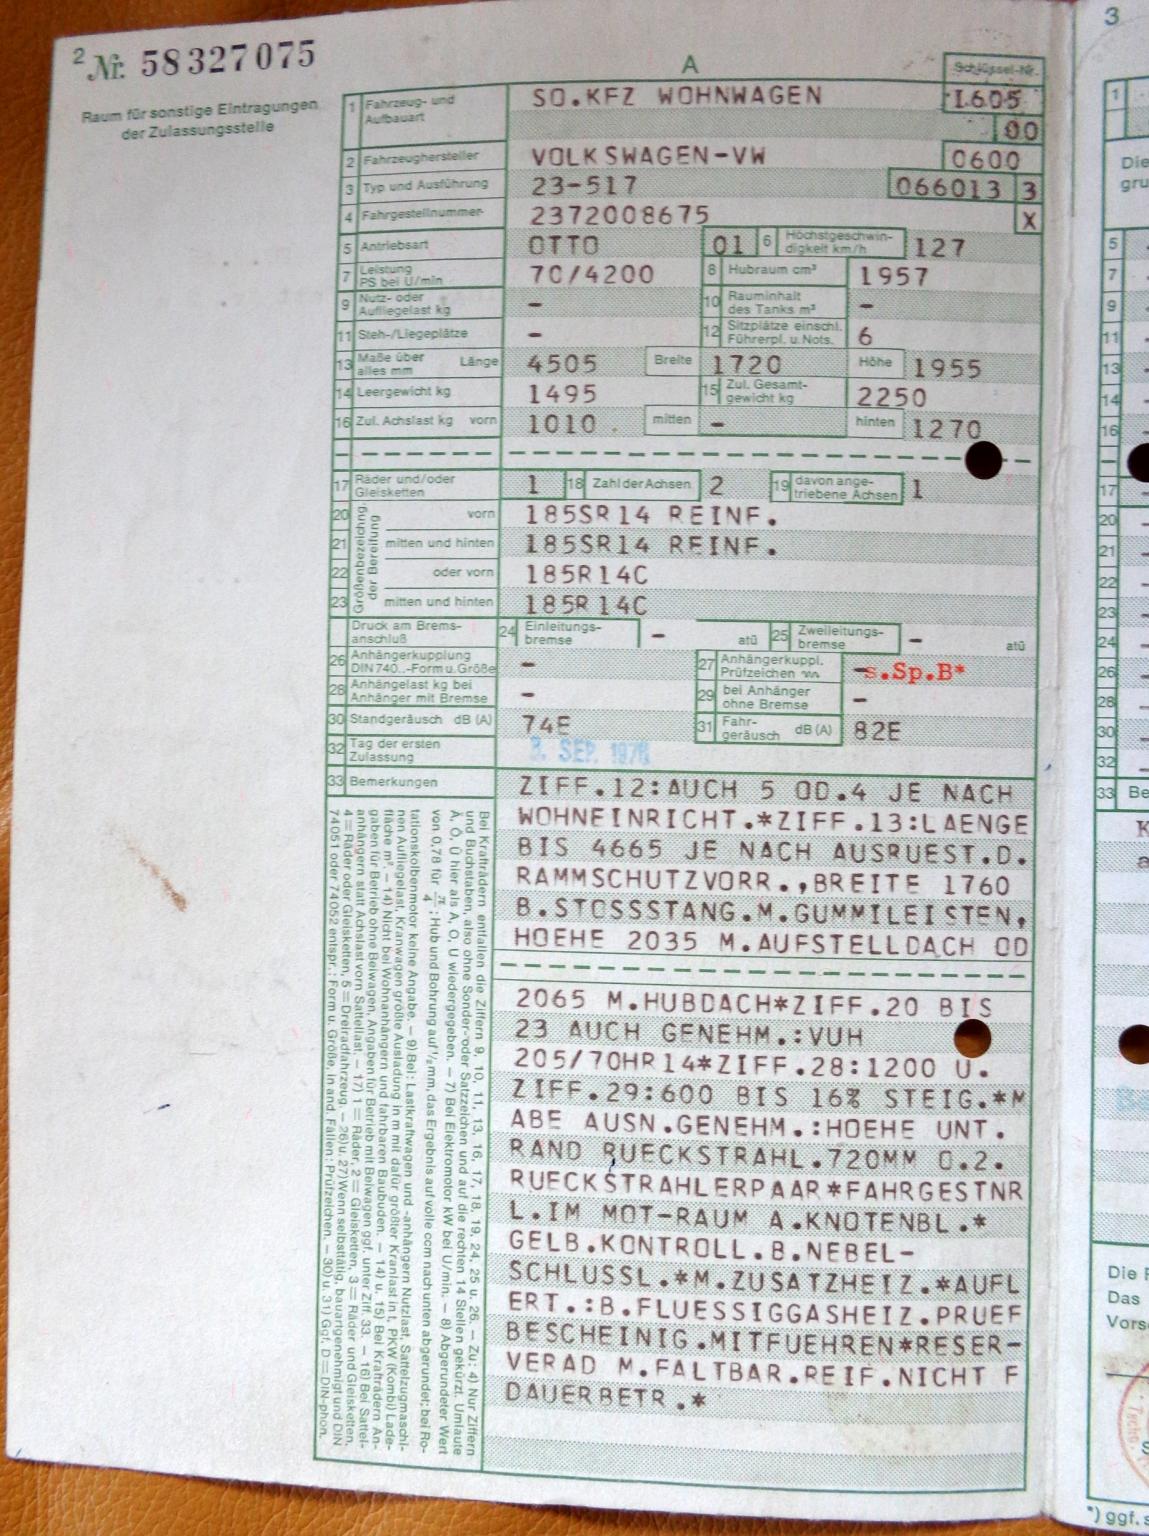 2 Nr. 58327075
Raum für sonstige Eintragungen
der Zulassungsstelle
A
Schlüssel-Nr.
1 Fahrzeug- und Aufbauart SO.KFZ WOHNWAGEN 1605
00
2 Fahrzeughersteller VOLKSWAGEN-VW 0600
3 Typ und Ausführung 23-517 066013 3
4 Fahrgestellnummer 2372008675 X
5 Antriebsart OTTO 01 6 Höchstgeschwindigkeit km/h 127
7 Leistung PS bei U/min 70/4200 8 Hubraum cm³ 1957
9 Nutz- oder Aufliegelast kg – 10 Rauminhalt des Tanks m³ –
11 Steh-/Liegeplätze – 12 Sitzplätze einschl. Führerpl. u. Nots. 6
13 Maße über alles mm Länge 4505 Breite 1720 Höhe 1955
14 Leergewicht kg 1495 15 Zul. Gesamtgewicht kg 2250
16 Zul. Achslast kg vorn 1010 mitten – hinten 1270
17 Räder und/oder Gleisketten 1 18 Zahl der Achsen 2 19 davon angetriebene Achsen 1
Größenbezeichnung der Bereifung
20 vorn 185SR14 REINF.
21 mitten und hinten 185SR14 REINF.
22 oder vorn 185R14C
23 mitten und hinten 185R14C
Druck am Bremsanschluß 24 Einleitungsbremse – atü 25 Zweileitungsbremse – atü
26 Anhängerkupplung DIN 740..-Form u. Größe – 27 Anhängerkuppl. Prüfzeichen – s.Sp.B*
28 Anhängelast kg bei Anhänger mit Bremse – 29 bei Anhänger ohne Bremse –
30 Standgeräusch dB (A) 74E 31 Fahrgeräusch dB (A) 82E
32 Tag der ersten Zulassung SEP. 1976
33 Bemerkungen ZIFF.12:AUCH 5 OD.4 JE NACH
WOHNEINRICHT.*ZIFF.13:LAENGE
BIS 4665 JE NACH AUSRUEST.D.
RAMMSCHUTZVORR.,BREITE 1760
B.STOSSSTANG.M.GUMMILEISTEN,
HOEHE 2035 M.AUFSTELLDACH OD
2065 M.HUBDACH*ZIFF.20 BIS
23 AUCH GENEHM.:VUH
205/70HR14*ZIFF.28:1200 U.
ZIFF.29:600 BIS 16% STEIG.*M
ABE AUSN.GENEHM.:HOEHE UNT.
RAND RUECKSTRAHL.720MM O.2.
RUECKSTRAHLERPAAR*FAHRGESTNR
L.IM MOT-RAUM A.KNOTENBL.*
GELB.KONTROLL.B.NEBEL-
SCHLUSSL.*M.ZUSATZHEIZ.*AUFL
ERT.:B.FLUESSIGGASHEIZ.PRUEF
BESCHEINIG.MITFUEHREN*RESER-
VERAD M.FALTBAR.REIF.NICHT F
DAUERBETR.*
Bei Krafträdern entfallen die Ziffern 9, 10, 11, 13, 16, 17, 18, 19, 24, 25 u. 26. – Zu: 4) Nur Ziffern
und Buchstaben, also ohne Sonder- oder Satzzeichen und auf die rechten 14 Stellen gekürzt. Umlaute
Ä, Ö, Ü hier als A, O, U wiedergegeben. – 7) Bei Elektromotor kW bei U/min. – 8) Abgerundeter Wert
von 0,78 für π/4; Hub und Bohrung auf ½ mm, das Ergebnis auf volle ccm nach unten abgerundet; bei Ro-
tationskolbenmotor keine Angabe. – 9) Bei: Lastkraftwagen und -anhängern Nutzlast, Sattelzugmaschi-
nen Aufliegelast, Kranwagen größte Ausladung in m mit dafür größter Kranlast in t, PKW (Kombi) Lade-
fläche m². – 14) Nicht bei Wohnanhängern und fahrbaren Baubuden. – 14) u. 15) Bei Krafträdern An-
gaben für Betrieb ohne Beiwagen, Angaben für Betrieb mit Beiwagen ggf. unter Ziff. 33. – 16) Bei Sattel-
anhängern statt Achslast vorn Sattellast. – 17) 1 = Räder, 2 = Gleisketten, 3 = Räder und Gleisketten,
4 = Räder oder Gleisketten, 5 = Dreiradfahrzeug. – 26) u. 27) Wenn selbsttätig, bauartgenehmigt und DIN
74051 oder 74052 entspr.: Form u. Größe, in and. Fällen: Prüfzeichen. – 30) u. 31) Ggf. D = DIN-phon.
3
1
Die
gru
5
7
9
11
13
14
16
17
20
21
22
23
24
26
28
30
32
33 Be
K
a
Be
Die
Das
Vors
*) ggf. s